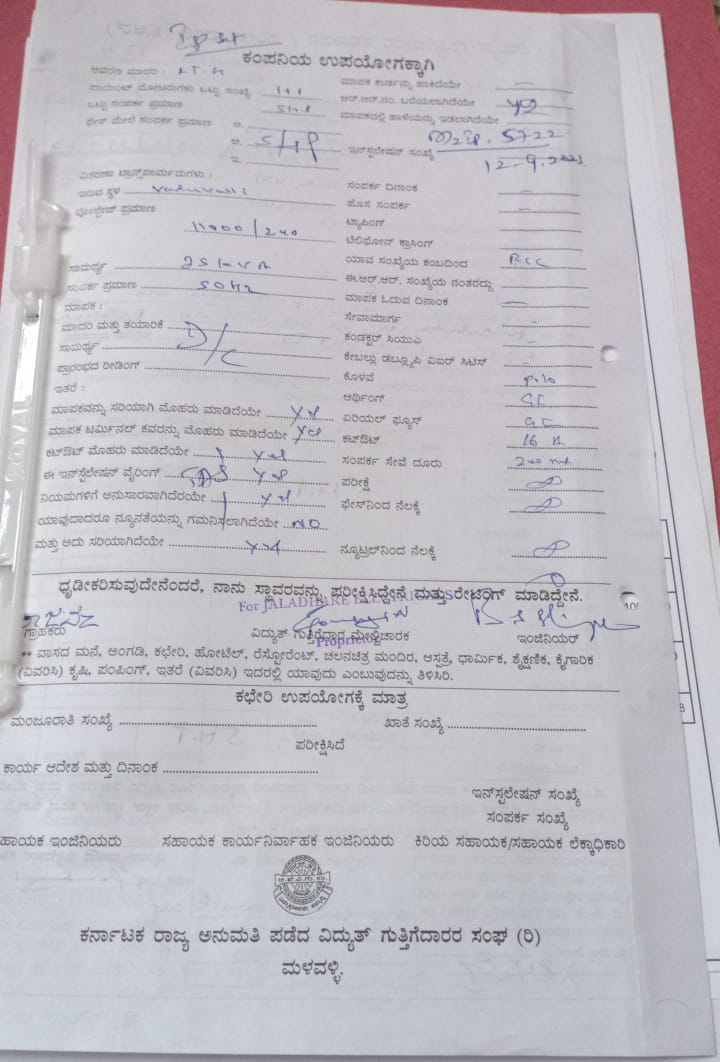 ಕಂಪನಿಯ ಉಪಯೋಗಕ್ಕಾಗಿ
ಆವರಣ ಮಾದರಿ : LT-4 ಮಾಪಕ ಕಾರ್ಡನ್ನು ಹಾಕಿದೆಯೇ
ಪಾಯಿಂಟ್ ಮೋಟರುಗಳು ಒಟ್ಟು ಸಂಖ್ಯೆ 1+1 ಆರ್.ಆರ್.ನಂ. ಬರೆಯಲಾಗಿದೆಯೇ
ಒಟ್ಟು ಸಂಪರ್ಕ ಪ್ರಮಾಣ ಮಾಪಕದಲ್ಲಿ ಹಾಳೆಯನ್ನು ಇಡಲಾಗಿದೆಯೇ yes
ಫೇಸ್ ಮೇಲೆ ಸಂಪರ್ಕ ಪ್ರಮಾಣ ಅ.
ಆ. 5HP ಇನ್‌ಸ್ಟಲೇಷನ್ ಸಂಖ್ಯೆ 5722
ಇ. 12-9-2021
ವಿತರಣಾ ಟ್ರಾನ್ಸ್‌ಫಾರ್ಮರುಗಳು : ಸಂಪರ್ಕ ದಿನಾಂಕ
ಇರುವ ಸ್ಥಳ ಹೊಸ ಸಂಪರ್ಕ
ವೋಲ್ಟೇಜ್ ಪ್ರಮಾಣ ಟ್ಯಾಪಿಂಗ್
11000/240 ಟೆಲಿಫೋನ್ ಕ್ರಾಸಿಂಗ್
ಸಾಮರ್ಥ್ಯ 25 KVA ಯಾವ ಸಂಖ್ಯೆಯ ಕಂಬದಿಂದ RCC
ಸಂಪರ್ಕ ಪ್ರಮಾಣ 50Hz ಈ.ಆರ್.ಆರ್. ಸಂಖ್ಯೆಯ ನಂತರದ್ದು
ಮಾಪಕ : ಮಾಪಕ ಓದುವ ದಿನಾಂಕ
ಮಾದರಿ ಮತ್ತು ತಯಾರಿಕೆ ಸೇವಾಮಾರ್ಗ
ಸಾಮರ್ಥ್ಯ D/C ಕಂಡಕ್ಟರ್ ಸಿಯುಎ
ಪ್ರಾರಂಭದ ರೀಡಿಂಗ್ ಕೇಬಲ್ಲು ಡಬ್ಲ್ಯೂಪಿ ವಿಐರ್ ಸಿಟಿಸ್
ಇತರೆ : ಕೊಳವೆ
ಆರ್ಥಿಂಗ್ GI
ಮಾಪಕವನ್ನು ಸರಿಯಾಗಿ ಮೊಹರು ಮಾಡಿದೆಯೇ yes ಏರಿಯಲ್ ಫ್ಯೂಸ್
ಮಾಪಕ ಟರ್ಮಿನಲ್ ಕವರನ್ನು ಮೊಹರು ಮಾಡಿದೆಯೇ yes ಕಟ್‌ಔಟ್ 16 A
ಕಟ್‌ಔಟ್ ಮೊಹರು ಮಾಡಿದೆಯೇ yes ಸಂಪರ್ಕ ಸೇವೆ ದೂರು 200 mt
ಈ ಇನ್‌ಸ್ಟಲೇಷನ್ ವೈರಿಂಗ್ yes ಪರೀಕ್ಷೆ
ನಿಯಮಗಳಿಗೆ ಅನುಸಾರವಾಗಿದೆರಯೇ yes ಫೇಸ್‌ನಿಂದ ನೆಲಕ್ಕೆ
ಯಾವುದಾದರೂ ನ್ಯೂನತೆಯನ್ನು ಗಮನಿಸಲಾಗಿದೆಯೇ NO
ಮತ್ತು ಅದು ಸರಿಯಾಗಿದೆಯೇ yes ನ್ಯೂಟ್ರಲ್‌ನಿಂದ ನೆಲಕ್ಕೆ
ಧೃಡೀಕರಿಸುವುದೇನೆಂದರೆ, ನಾನು ಸ್ಥಾವರವನ್ನು ಪರೀಕ್ಷಿಸಿದ್ದೇನೆ ಮತ್ತುರೇಟಿಂಗ್ ಮಾಡಿದ್ದೇನೆ.
For
ಗ್ರಾಹಕರು ವಿದ್ಯುತ್ ಗುತ್ತಿಗೆದಾರ ಮೇಲ್ವಿಚಾರಕ ಇಂಜಿನಿಯರ್
Proprietor
** ವಾಸದ ಮನೆ, ಅಂಗಡಿ, ಕಛೇರಿ, ಹೋಟೆಲ್, ರೆಸ್ಟೋರೆಂಟ್, ಚಲನಚಿತ್ರ ಮಂದಿರ, ಆಸ್ಪತ್ರೆ, ಧಾರ್ಮಿಕ, ಶೈಕ್ಷಣಿಕ, ಕೈಗಾರಿಕ
(ವಿವರಿಸಿ) ಕೃಷಿ, ಪಂಪಿಂಗ್, ಇತರೆ (ವಿವರಿಸಿ) ಇದರಲ್ಲಿ ಯಾವುದು ಎಂಬುವುದನ್ನು ತಿಳಿಸಿರಿ.
ಕಛೇರಿ ಉಪಯೋಗಕ್ಕೆ ಮಾತ್ರ
ಮಂಜೂರಾತಿ ಸಂಖ್ಯೆ ಖಾತೆ ಸಂಖ್ಯೆ
ಪರೀಕ್ಷಿಸಿದೆ
ಕಾರ್ಯ ಆದೇಶ ಮತ್ತು ದಿನಾಂಕ
ಇನ್‌ಸ್ಟಲೇಷನ್ ಸಂಖ್ಯೆ
ಸಂಪರ್ಕ ಸಂಖ್ಯೆ
ಹಾಯಕ ಇಂಜಿನಿಯರು ಸಹಾಯಕ ಕಾರ್ಯನಿರ್ವಾಹಕ ಇಂಜಿನಿಯರು ಕಿರಿಯ ಸಹಾಯಕ/ಸಹಾಯಕ ಲೆಕ್ಕಾಧಿಕಾರಿ
ಕರ್ನಾಟಕ ರಾಜ್ಯ ಅನುಮತಿ ಪಡೆದ ವಿದ್ಯುತ್ ಗುತ್ತಿಗೆದಾರರ ಸಂಘ (ರಿ)
ಮಳವಳ್ಳಿ.